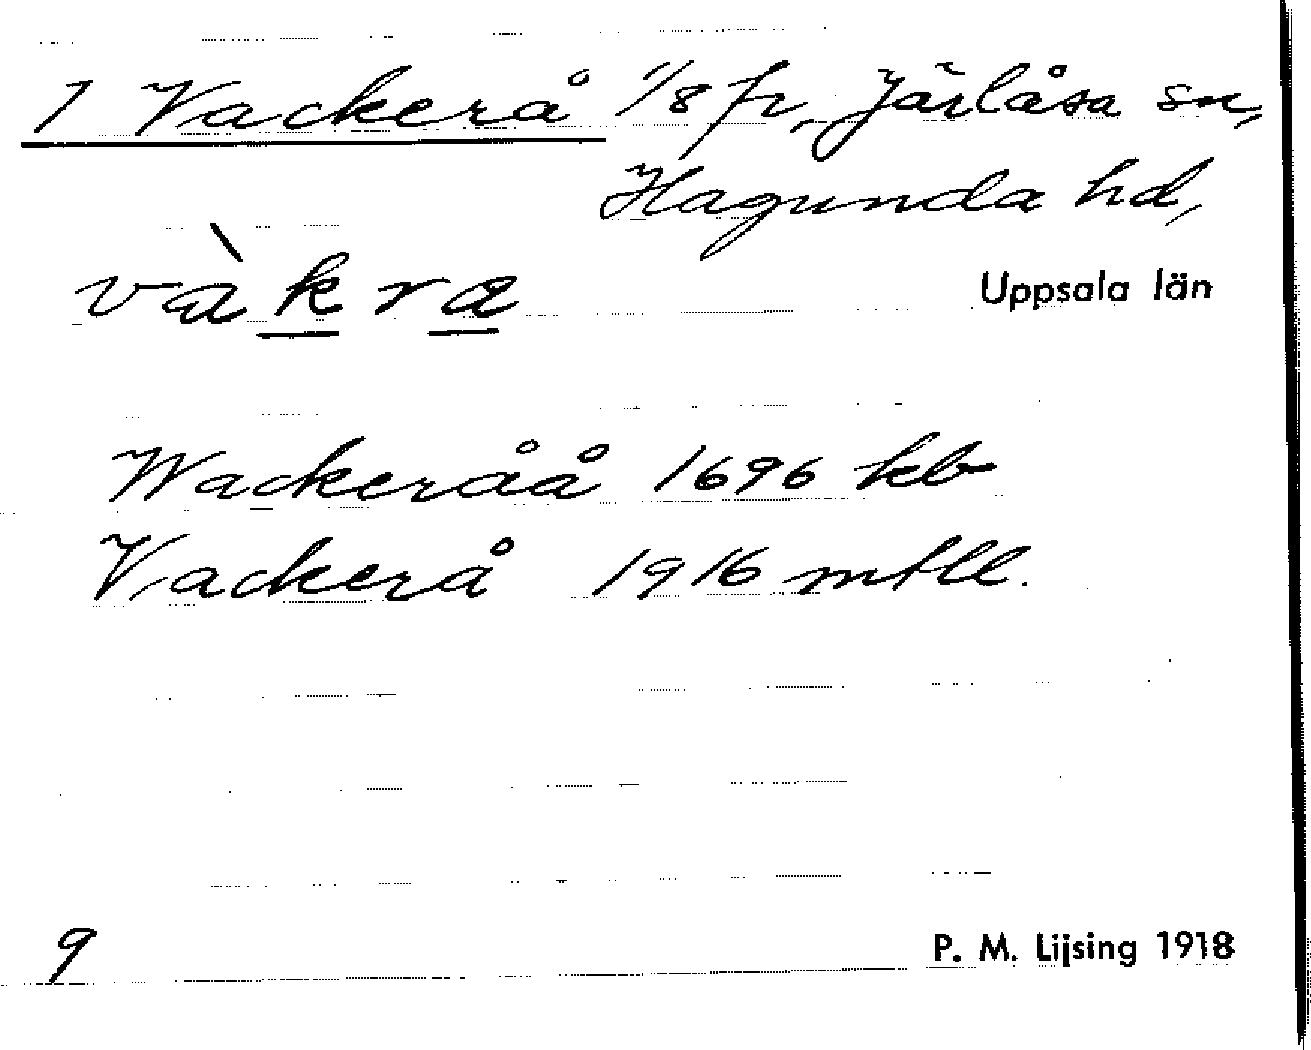 1 Vackerå 1/8 fr, Järlåsa sn,
Hagunda hd,
vàkra
Uppsala län
Wackeråå 1696 kb
Vackerå 1916 mtll.
9
P. M. Lijsing 1918